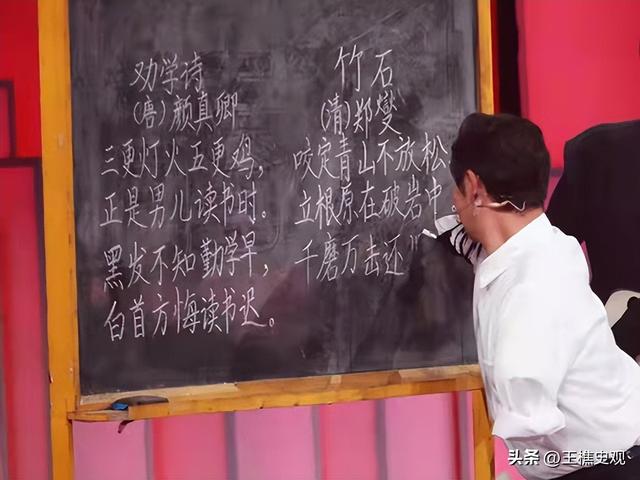 劝学诗
(唐)颜真卿
三更灯火五更鸡，
正是男儿读书时。
黑发不知勤学早，
白首方悔读书迟。
竹石
(清)郑燮
咬定青山不放松
立根原在破岩中。
千磨万击还
头条 @王樵史观